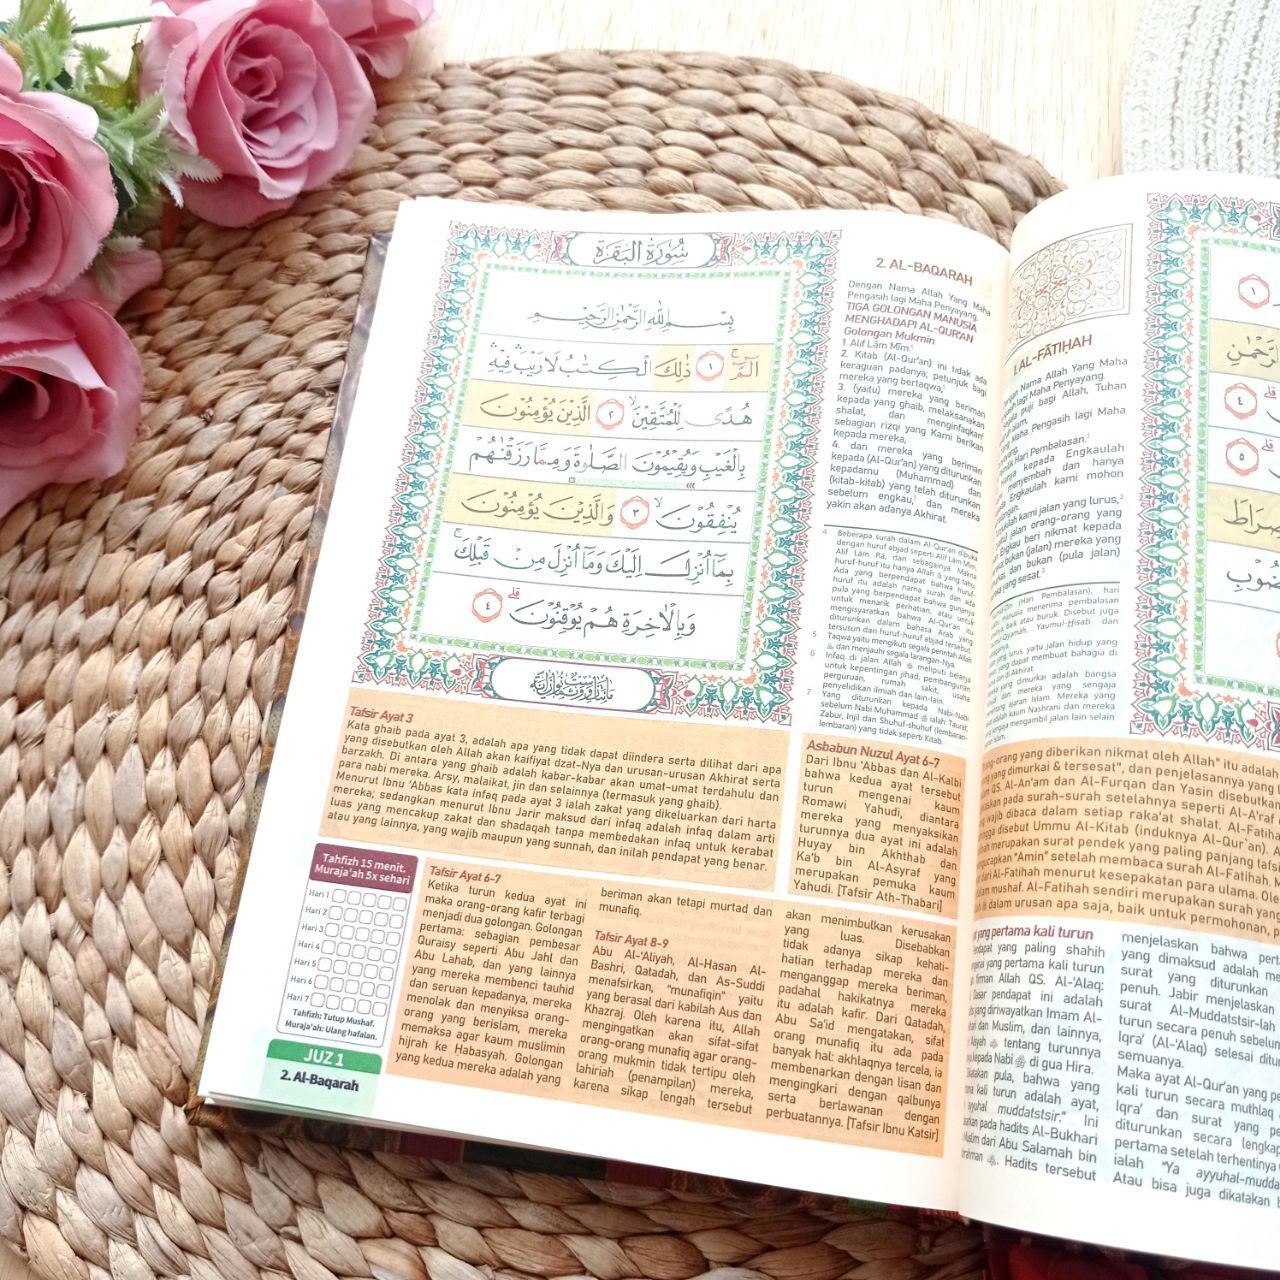 سُورَةُ الْبَقَرَةِ
بِسْمِ اللّٰهِ الرَّحْمٰنِ الرَّحِيْمِ
الۤمّۤ ۚ ١ ذٰلِكَ الْكِتٰبُ لَا رَيْبَ ۛ فِيْهِ ۛ
هُدًى لِّلْمُتَّقِيْنَ ۙ ٢ الَّذِيْنَ يُؤْمِنُوْنَ
بِالْغَيْبِ وَيُقِيْمُوْنَ الصَّلٰوةَ وَمِمَّا رَزَقْنٰهُمْ
يُنْفِقُوْنَ ۙ ٣ وَالَّذِيْنَ يُؤْمِنُوْنَ
بِمَآ اُنْزِلَ اِلَيْكَ وَمَآ اُنْزِلَ مِنْ قَبْلِكَ ۚ
وَبِالْاٰخِرَةِ هُمْ يُوْقِنُوْنَ ۗ ٤
2. AL-BAQARAH
Dengan Nama Allah Yang Maha
Pengasih lagi Maha Penyayang.
TIGA GOLONGAN MANUSIA
MENGHADAPI AL-QUR'AN
Golongan Mukmin
1. Alif Lām Mīm.⁴
2. Kitab (Al-Qur'an) ini tidak ada
keraguan padanya; petunjuk bagi
mereka yang bertaqwa,⁵
3. (yaitu) mereka yang beriman
kepada yang ghaib, melaksanakan
shalat, dan menginfaqkan⁶
sebagian rizqi yang Kami berikan
kepada mereka,
4. dan mereka yang beriman
kepada (Al-Qur'an) yang diturunkan
kepadamu (Muhammad) dan
(kitab-kitab) yang telah diturunkan
sebelum engkau,⁷ dan mereka
yakin akan adanya Akhirat.
4 Beberapa surah dalam Al-Qur'an dibuka
dengan huruf abjad seperti Alif Lām Mīm,
Alif Lām Rā, dan sebagainya. Makna
huruf-huruf itu hanya Allah yang tahu.
Ada yang berpendapat bahwa huruf-
huruf itu adalah nama surah dan ada
pula yang berpendapat bahwa gunanya
untuk menarik perhatian, atau untuk
mengisyaratkan bahwa Al-Qur'an itu
diturunkan dalam bahasa Arab yang
tersusun dari huruf-huruf abjad tersebut.
5 Taqwa yaitu mengikuti segala perintah Allah
dan menjauhi segala larangan-Nya.
6 Infaq di jalan Allah meliputi belanja
untuk kepentingan jihad, pembangunan
perguruan, rumah sakit, usaha
penyelidikan ilmiah dan lain-lain.
7 Yang diturunkan kepada Nabi-Nabi
sebelum Nabi Muhammad ﷺ ialah Taurat,
Zabur, Injil dan Shuhuf-shuhuf (lembaran-
lembaran) yang tidak seperti Kitab.
Tafsir Ayat 3
Kata ghaib pada ayat 3, adalah apa yang tidak dapat diindera serta dilihat dari apa
yang disebutkan oleh Allah akan kaifiyat dzat-Nya dan urusan-urusan Akhirat serta
barzakh. Di antara yang ghaib adalah kabar-kabar akan umat-umat terdahulu dan
para nabi mereka. Arsy, malaikat, jin dan selainnya (termasuk yang ghaib).
Menurut Ibnu 'Abbas kata infaq pada ayat 3 ialah zakat yang dikeluarkan dari harta
mereka; sedangkan menurut Ibnu Jarir maksud dari infaq adalah infaq dalam arti
luas yang mencakup zakat dan shadaqah tanpa membedakan infaq untuk kerabat
atau yang lainnya, yang wajib maupun yang sunnah, dan inilah pendapat yang benar.
Asbabun Nuzul Ayat 6-7
Dari Ibnu 'Abbas dan Al-Kalbi
bahwa kedua ayat tersebut
turun mengenai kaum
Romawi Yahudi, diantara
mereka yang menyaksikan
turunnya dua ayat ini adalah
Huyay bin Akhthab dan
Ka'b bin Al-Asyraf yang
merupakan pemuka kaum
Yahudi. [Tafsir Ath-Thabari]
Tahfizh 15 menit.
Muraja'ah 5x sehari
Hari 1
Hari 2
Hari 3
Hari 4
Hari 5
Hari 6
Hari 7
Tahfizh: Tutup Mushaf.
Muraja'ah: Ulang hafalan.
JUZ 1
2. Al-Baqarah
Tafsir Ayat 6-7
Ketika turun kedua ayat ini
maka orang-orang kafir terbagi
menjadi dua golongan. Golongan
pertama: sebagian pembesar
Quraisy seperti Abu Jahl dan
Abu Lahab, dan yang lainnya
yang mereka membenci tauhid
dan seruan kepadanya, mereka
menolak dan menyiksa orang-
orang yang berislam, mereka
memaksa agar kaum muslimin
hijrah ke Habasyah. Golongan
yang kedua mereka adalah yang
beriman akan tetapi murtad dan
munafiq.
Tafsir Ayat 8-9
Abu Al-'Aliyah, Al-Hasan Al-
Bashri, Qatadah, dan As-Suddi
menafsirkan, "munafiqin" yaitu
yang berasal dari kabilah Aus dan
Khazraj. Oleh karena itu, Allah
mengingatkan akan sifat-sifat
orang-orang munafiq agar orang-
orang mukmin tidak tertipu oleh
lahiriah (penampilan) mereka,
karena sikap lengah tersebut
akan menimbulkan kerusakan
yang luas. Disebabkan
tidak adanya sikap kehati-
hatian terhadap mereka dan
menganggap mereka beriman,
padahal hakikatnya mereka
itu adalah kafir. Dari Qatadah,
Abu Sa'id mengatakan, sifat
orang munafiq itu ada pada
banyak hal: akhlaqnya tercela, ia
membenarkan dengan lisan dan
mengingkari dengan qalbunya
serta berlawanan dengan
perbuatannya. [Tafsir Ibnu Katsir]
1. AL-FĀTIḤAH
Nama Allah Yang Maha
lagi Maha Penyayang.
puji bagi Allah, Tuhan
alam,
Maha Pengasih lagi Maha
Hari Pembalasan.¹
kepada Engkaulah
menyembah dan hanya
Engkaulah kami mohon
kami jalan yang lurus,²
jalan orang-orang yang
Engkau beri nikmat kepada
bukan (jalan) mereka yang
dan bukan (pula jalan)
yang sesat.³
(Hari Pembalasan), hari
manusia menerima pembalasan
baik atau buruk. Disebut juga
Yaumul-Ḥisab dan
yang lurus, yaitu jalan hidup yang
yang dapat membuat bahagia di
dan di Akhirat.
yang dimurkai adalah bangsa
dan mereka yang sengaja
ajaran Islam. Mereka yang
adalah kaum Nashrani dan mereka
mengambil jalan lain selain
Islam.
١
٤
٥
صِرَاطَ
orang-orang yang diberikan nikmat oleh Allah" itu adalah
yang dimurkai & tersesat", dan penjelasannya yang
QS. Al-An'am dan Al-Furqan dan Yasin disebutkan
pada surah-surah setelahnya seperti Al-A'raf
wajib dibaca dalam setiap raka'at shalat. Al-Fatihah
disebut Ummu Al-Kitab (induknya Al-Qur'an).
merupakan surat pendek yang paling panjang
mengucapkan "Amin" setelah membaca surah Al-Fatihah.
dari Al-Fatihah menurut kesepakatan para ulama.
mushaf. Al-Fatihah sendiri merupakan surah yang
dalam urusan apa saja, baik untuk permohonan,
yang pertama kali turun
pendapat yang paling shahih
yang pertama kali turun
firman Allah QS. Al-'Alaq:
Dasar pendapat ini adalah
yang diriwayatkan Imam Al-
dan Muslim, dan lainnya,
Aisyah tentang turunnya
kepada Nabi ﷺ di gua Hira.
pula, bahwa yang
kali turun adalah ayat,
ayyuhal muddatstsir." Ini
pada hadits Al-Bukhari
Muslim dari Abu Salamah bin
Hadits tersebut
menjelaskan bahwa
yang dimaksud adalah
surat yang diturunkan
penuh. Jabir menjelaskan
surat Al-Muddatstsir-lah
turun secara penuh sebelum
Iqra' (Al-'Alaq) selesai
semuanya.
Maka ayat Al-Qur'an yang
kali turun secara muthlaq
Iqra' dan surat yang
diturunkan secara lengkap
pertama setelah terhentinya
ialah "Ya ayyuhal-
Atau bisa juga dikatakan